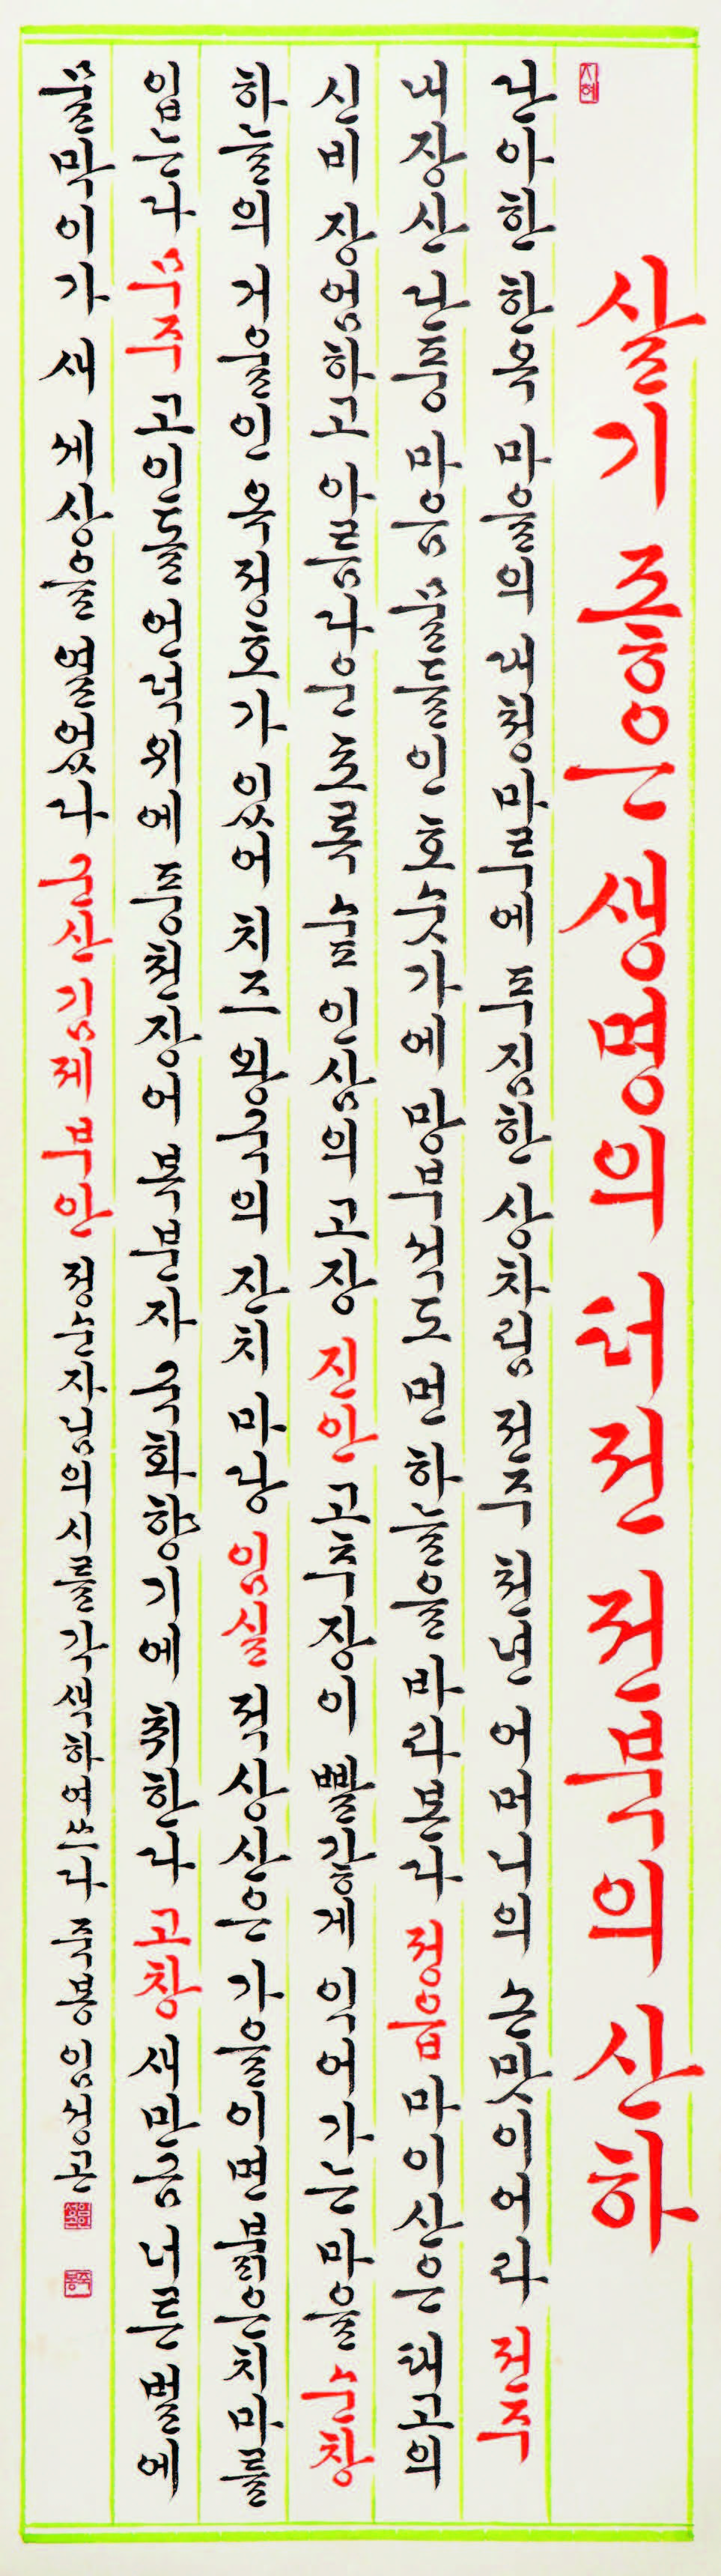 지혜
살기 조흥은 생명의 터전 전북의 산하
단아한 한옥 마을의 대청마루에 푸짐한 상차림 전주 천년 어머니의 손맛이어라 전주
내장산 단풍 마음 물들인 호숫가에 망부석도 먼 하늘을 바라본다 정읍 마이산은 태고의
신비 장엄하고 아름다운 초록 숲 인삼의 고장 진안 고추장이 빨갛게 익어가는 마을 순창
하늘의 거울인 옥정호가 있어 치즈 왕국의 잔치 마당 임실 적상산은 가을이면 붉은치마를
입는다 무주 고인돌 언덕위에 풍천장어 복분자 국화향기에 취한다 고창 새만금 너른 벌에
물막이가 새 세상을 열었다 군산 김제 부안 정순자님의 시를 각색하여쓰다 죽봉 임성곤